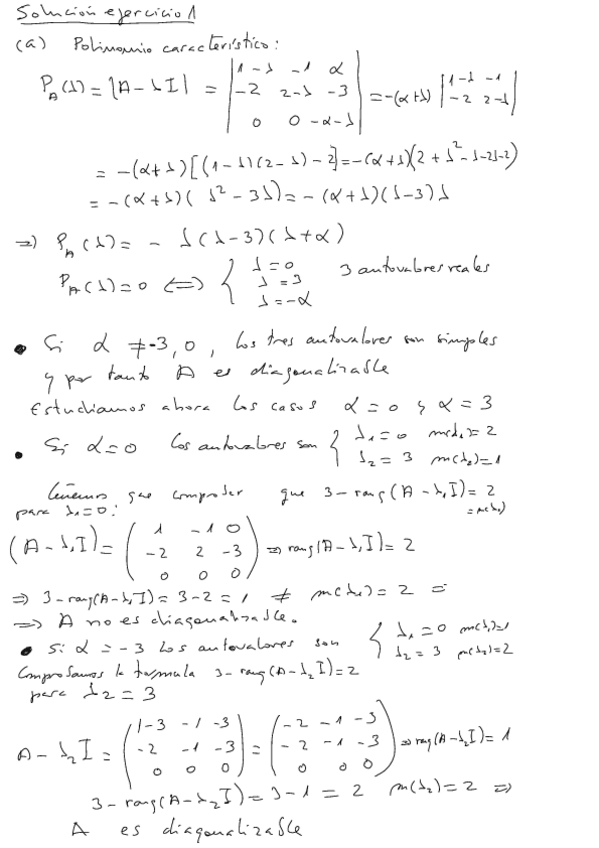 Solución ejercicio 1
(a) Polinomio característico:
P_A(λ) = |A - λI| = | 1-λ -1 α ; -2 2-λ -3 ; 0 0 -α-λ | = -(α+λ) | 1-λ -1 ; -2 2-λ |
= -(α+λ)[(1-λ)(2-λ) - 2] = -(α+λ)(2 + λ² - λ - 2λ - 2)
= -(α+λ)(λ² - 3λ) = -(α+λ)(λ-3)λ
⇒) P_A(λ) = - λ(λ-3)(λ+α)
P_A(λ) = 0 ⇔ { λ=0 ; λ=3 ; λ=-α 3 autovalores reales
• Si α ≠ -3, 0, los tres autovalores son simples
y por tanto A es diagonalizable
Estudiamos ahora los casos α = 0 y α = 3
• Si α = 0 los autovalores son { λ₁ = 0 m(λ₁) = 2 ; λ₂ = 3 m(λ₂) = 1
Tenemos que comprobar que 3 - rang(A - λ₁I) = 2
para λ₁ = 0: = m(λ₁)
(A - λ₁I) = ( 1 -1 0 ; -2 2 -3 ; 0 0 0 ) ⇒ rang(A - λ₁I) = 2
⇒ 3 - rang(A - λ₁I) = 3 - 2 = 1 ≠ m(λ₁) = 2 =
⇒ A no es diagonalizable.
• Si α = -3 los autovalores son { λ₁ = 0 m(λ₁) = 1 ; λ₂ = 3 m(λ₂) = 2
Comprobamos la formula 3 - rang(A - λ₂I) = 2
para λ₂ = 3
A - λ₂I = ( 1-3 -1 -3 ; -2 -1 -3 ; 0 0 0 ) = ( -2 -1 -3 ; -2 -1 -3 ; 0 0 0 ) ⇒ rang(A - λ₂I) = 1
3 - rang(A - λ₂I) = 3 - 1 = 2 m(λ₂) = 2 ⇒
A es diagonalizable